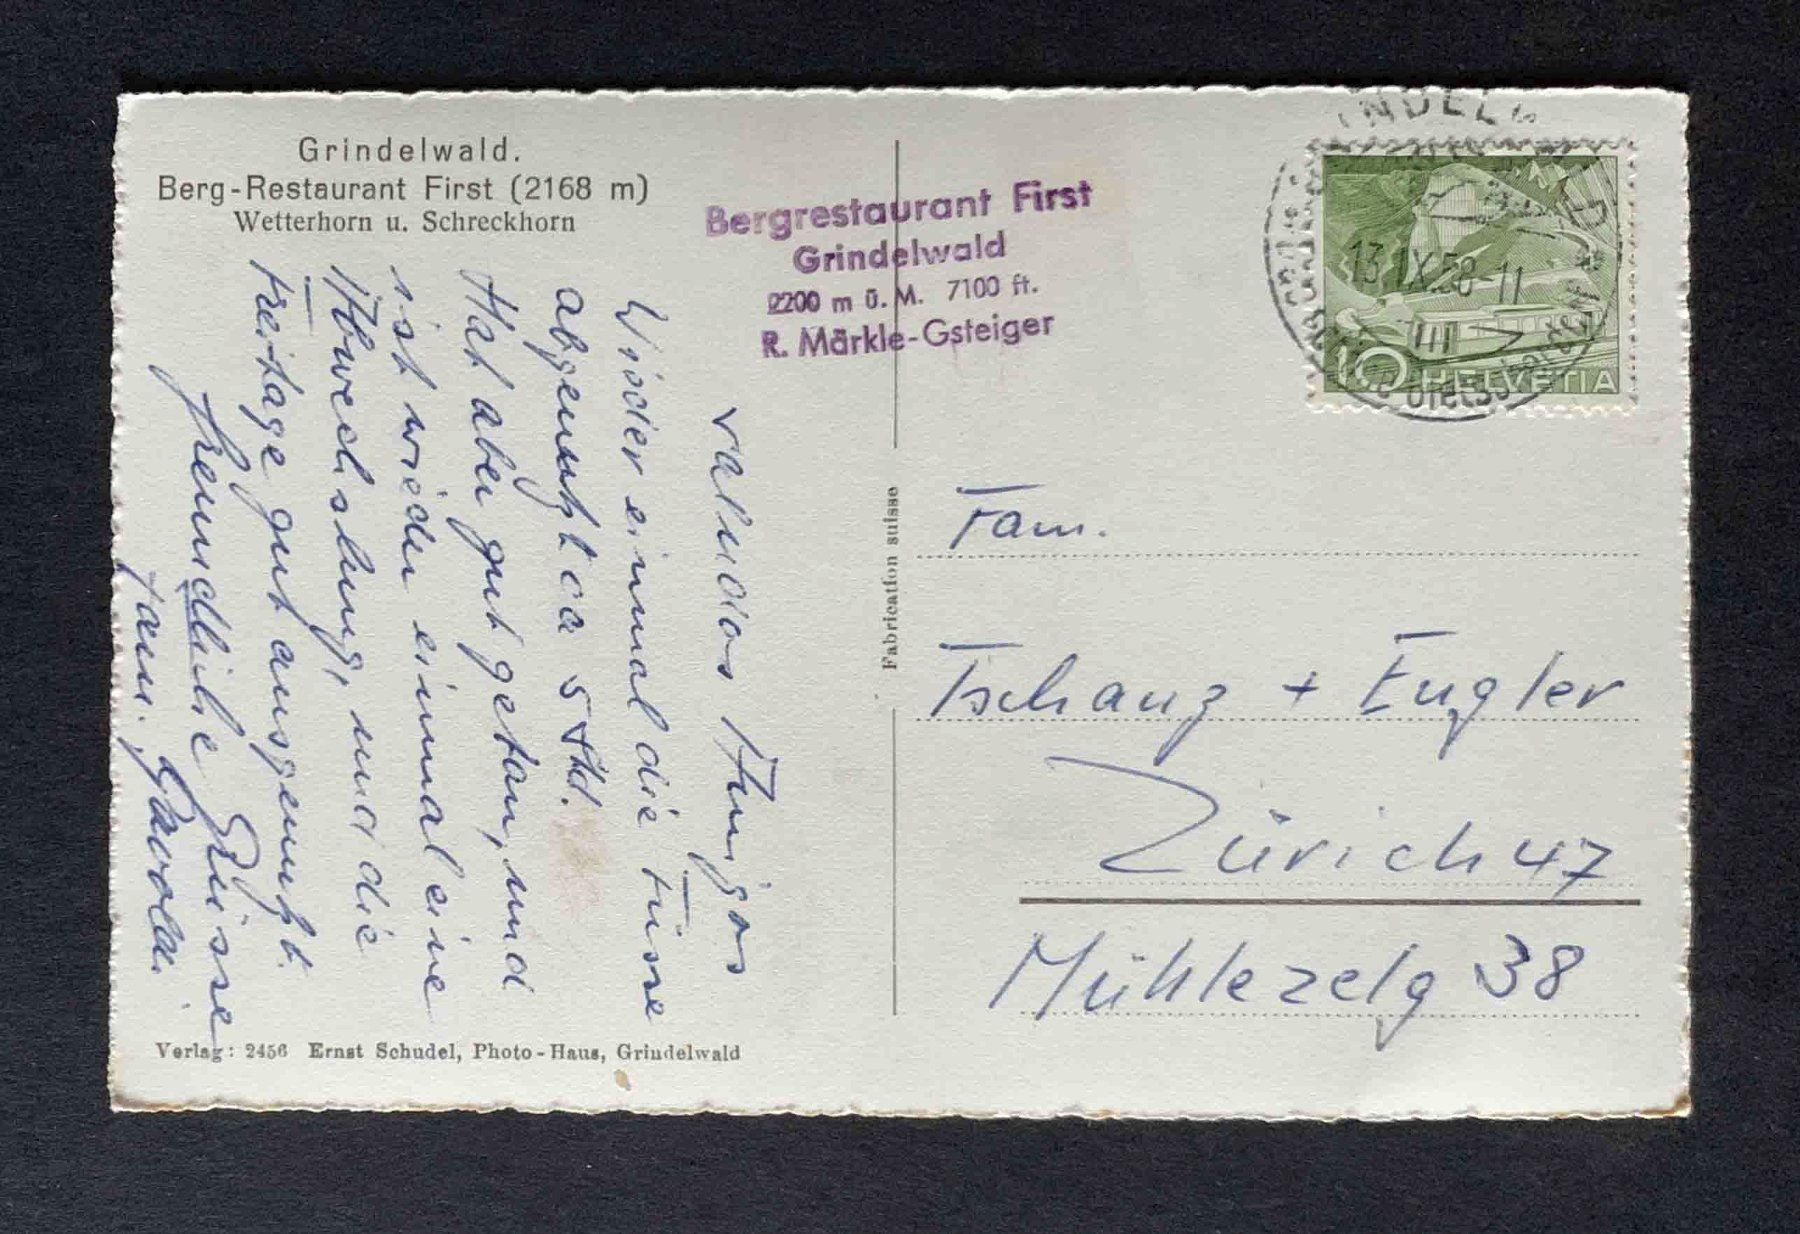 Grindelwald.
Berg-Restaurant First (2168 m)
Wetterhorn u. Schreckhorn
Bergrestaurant First
Grindelwald
2200 m ü. M. 7100 ft.
R. Märkle-Gsteiger
13. IX. 58-11
10 HELVETIA
Saludos Amigos
Wieder einmal die Füsse
abgenutzt ca 5 Std.
Hat aber gut getan, und
ist wieder einmal eine
Abwechslung, und die
Freitage gut ausgenutzt.
freundliche Grüsse
Fam.
Fabrication suisse
Fam.
Tschanz + Engler
Zürich 47
Mühlezelg 38
Verlag: 2456 Ernst Schudel, Photo-Haus, Grindelwald